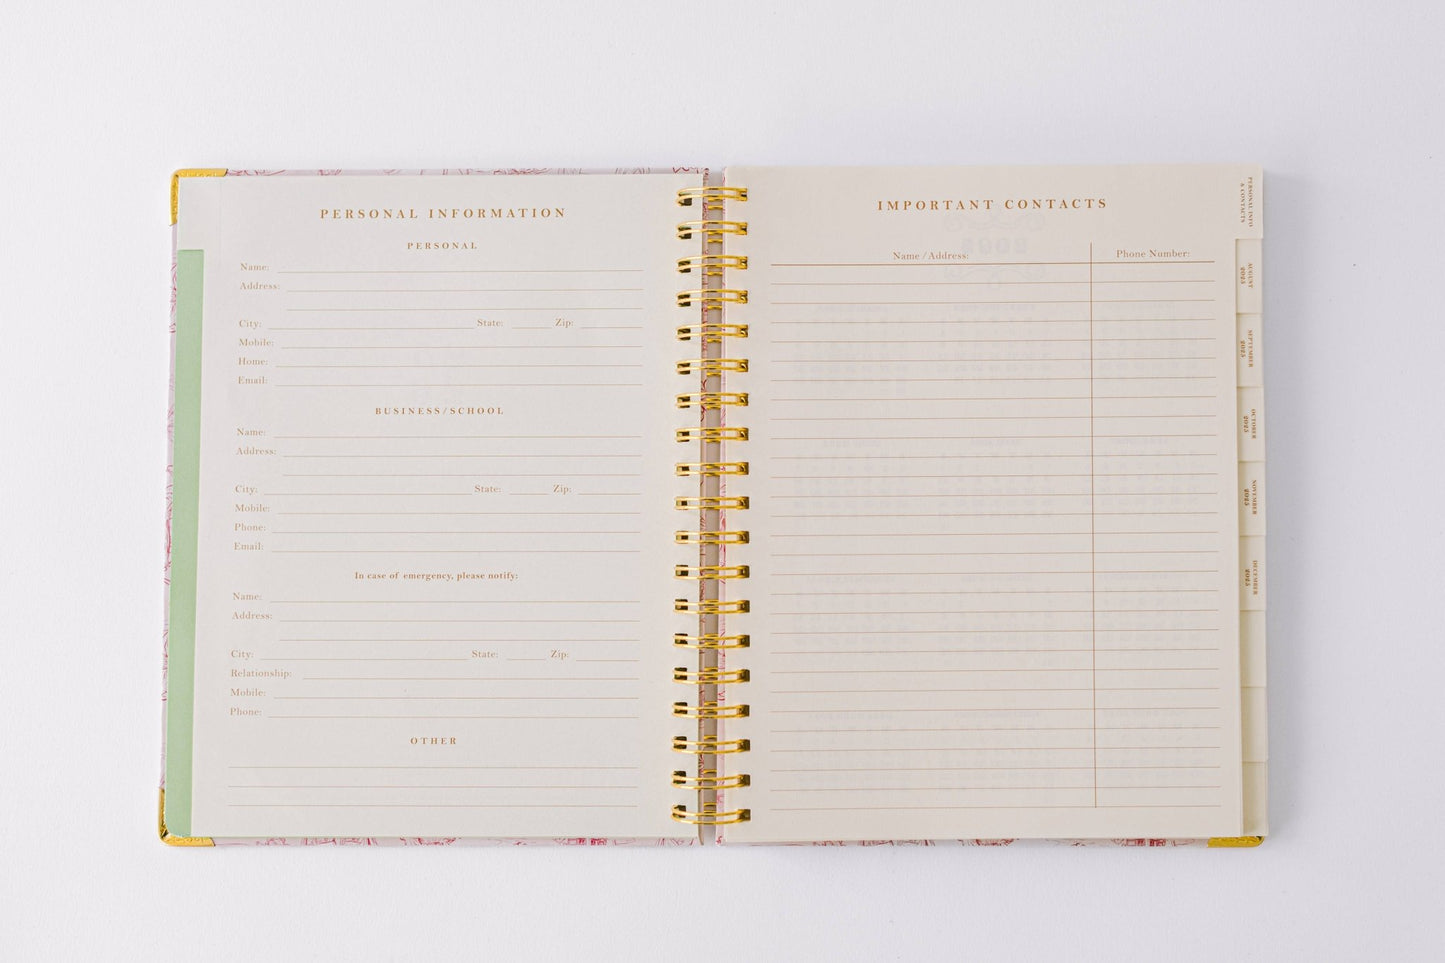 PERSONAL INFORMATION
PERSONAL
Name:
Address:
City: State: Zip:
Mobile:
Home:
Email:
BUSINESS/SCHOOL
Name:
Address:
City: State: Zip:
Mobile:
Phone:
Email:
In case of emergency, please notify:
Name:
Address:
City: State: Zip:
Relationship:
Mobile:
Phone:
OTHER
IMPORTANT CONTACTS
Name / Address: Phone Number:
PERSONAL INFO
& CONTACTS
AUGUST
2025
SEPTEMBER
2025
OCTOBER
2025
NOVEMBER
2025
DECEMBER
2025